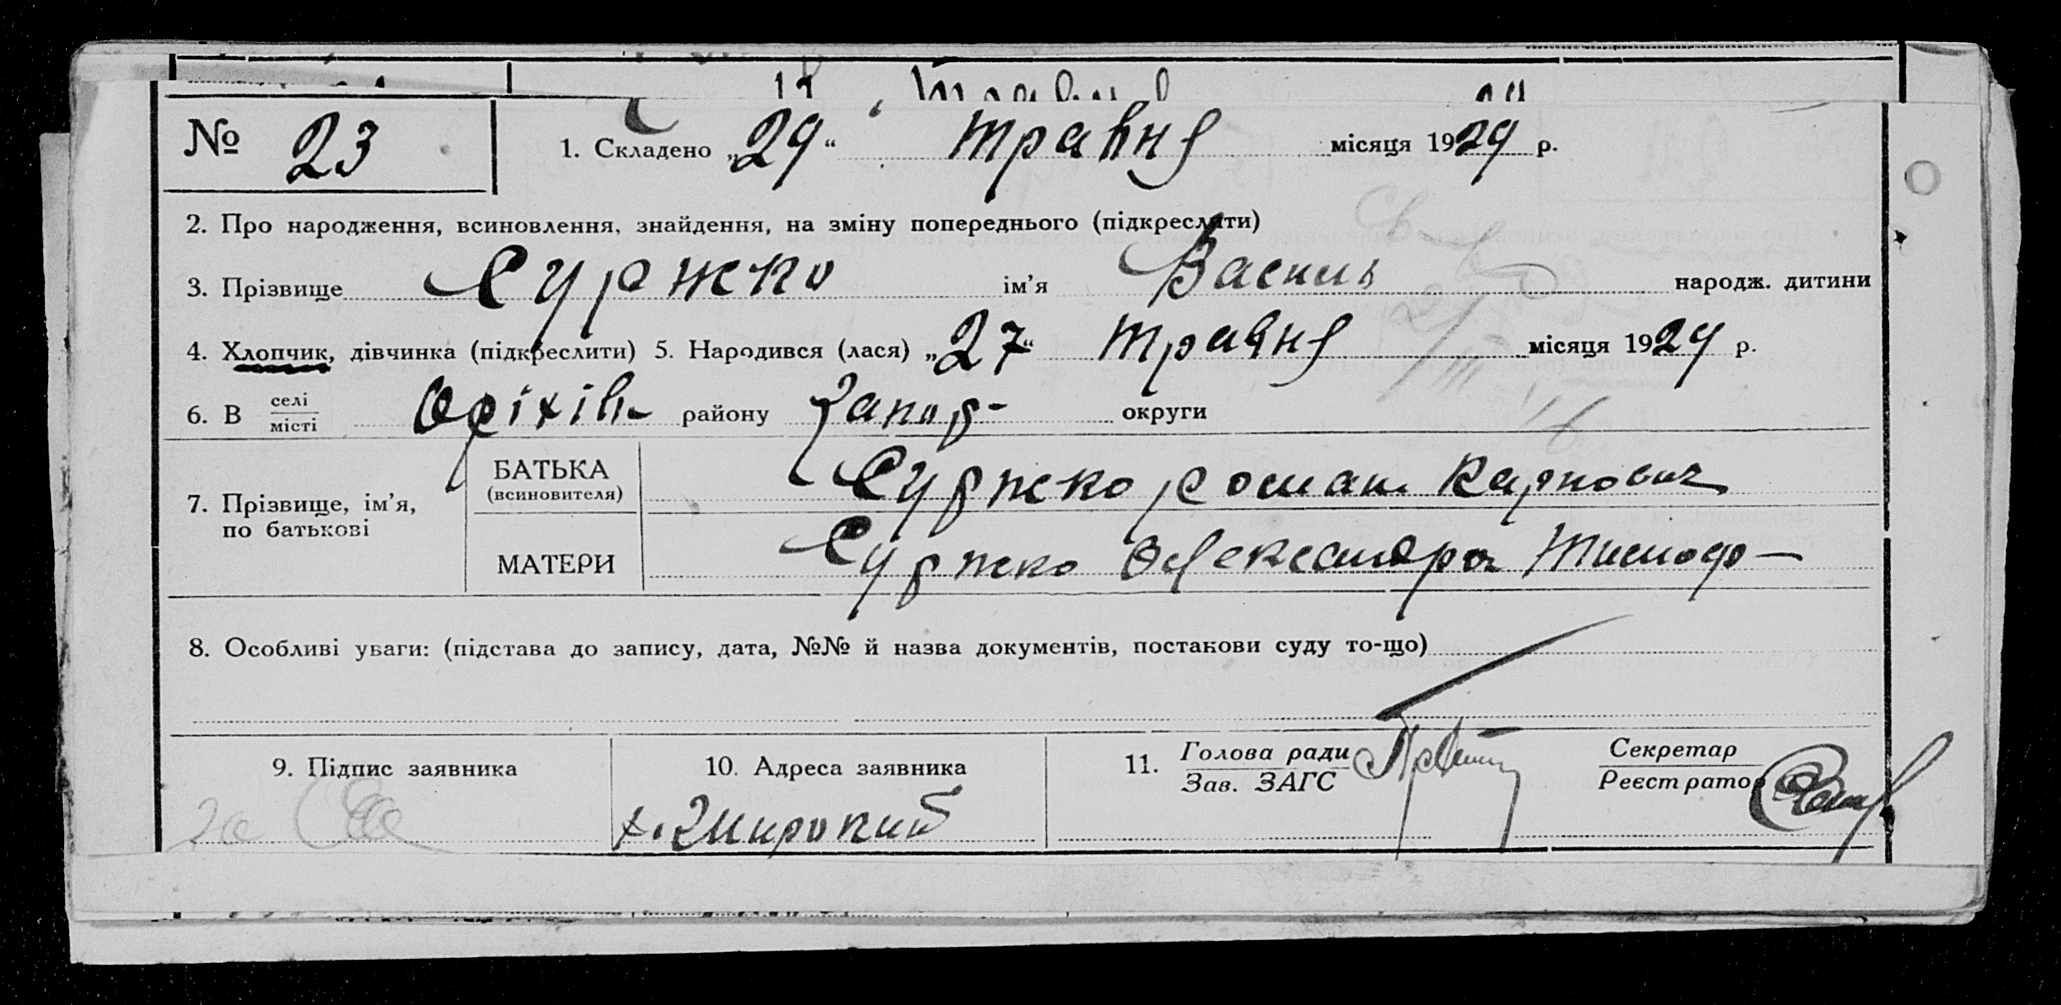 № 23
1. Складено „29“ травня місяця 1929 р.
2. Про народження, всиновлення, знайдення, на зміну попереднього (підкреслити)
3. Прізвище Суржко ім’я Василь народж. дитини
4. Хлопчик, дівчинка (підкреслити) 5. Народився (лася) „27“ травня місяця 1929 р.
6. В селі місті Оріхів району Запор- округи
7. Прізвище, ім’я, по батькові
БАТЬКА (всиновителя) Суржко Роман Карпович
МАТЕРИ Суржко Олександра Тимоф-
8. Особливі уваги: (підстава до запису, дата, №№ й назва документів, постакови суду то-що)
9. Підпис заявника
10. Адреса заявника
х. Широкий
11. Голова ради
Зав. ЗАГС
Секретар
Реєстратор